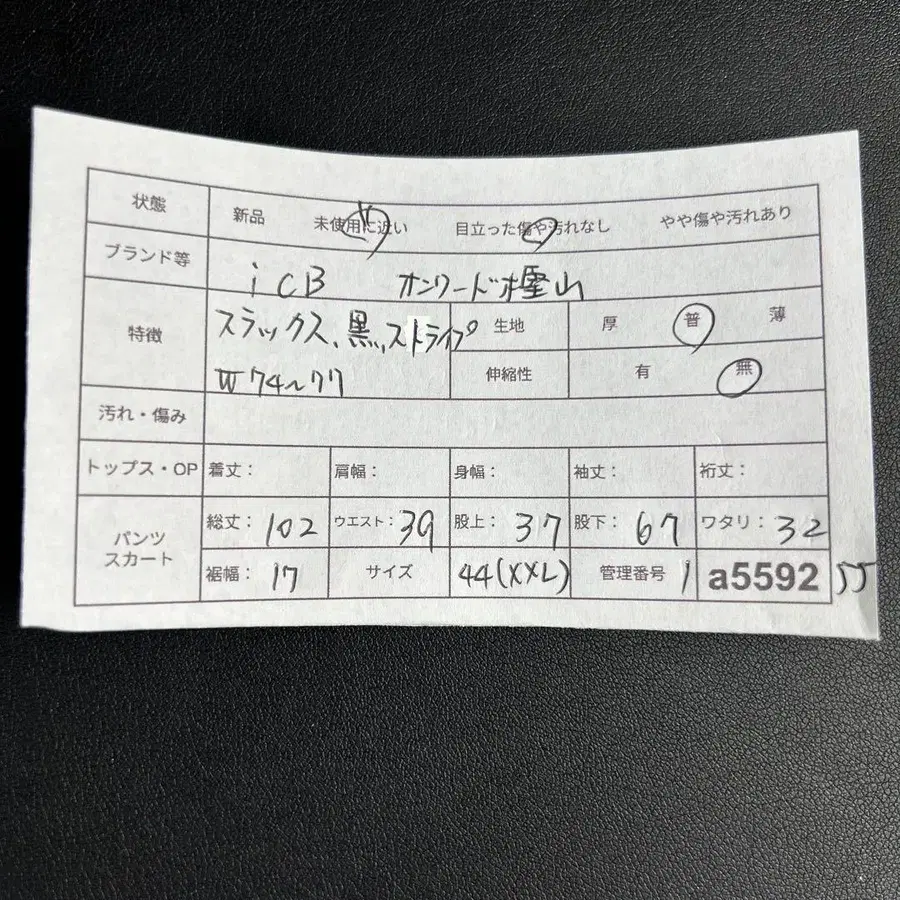 状態 新品 未使用に近い 目立った傷や汚れなし やや傷や汚れあり
ブランド等 iCB オンワード樫山
特徴 スラックス、黒、ストライプ
W74~77
生地 厚 普 薄
伸縮性 有 無
汚れ・傷み
トップス・OP 着丈: 肩幅: 身幅: 袖丈: 裄丈:
パンツ スカート
総丈: 102 ウエスト: 39 股上: 37 股下: 67 ワタリ: 32
裾幅: 17 サイズ 44(XXL) 管理番号 1 a5592 55